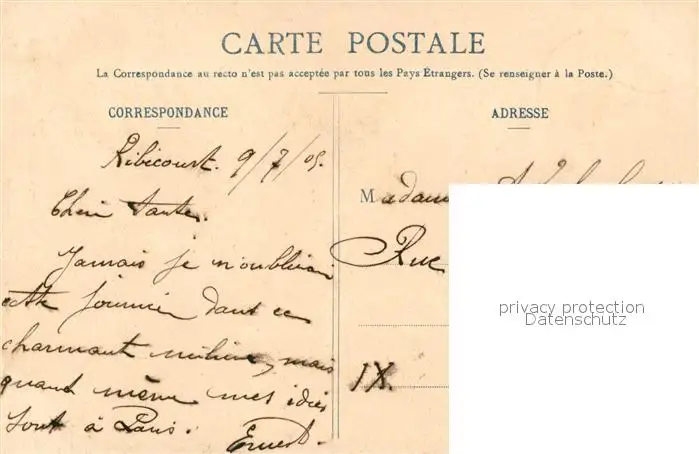 CARTE POSTALE
La Correspondance au recto n'est pas acceptée par tous les Pays Étrangers. (Se renseigner à la Poste.)
CORRESPONDANCE
Ribécourt. 9/7/05.
Cheri Tante.
Jamais je n'oublierai
cette journée dans ce
charmant milieu, mais
quand même mes idées
sont à Paris.
Ernest.
ADRESSE
Madame
Rue
IX.
privacy protection
Datenschutz